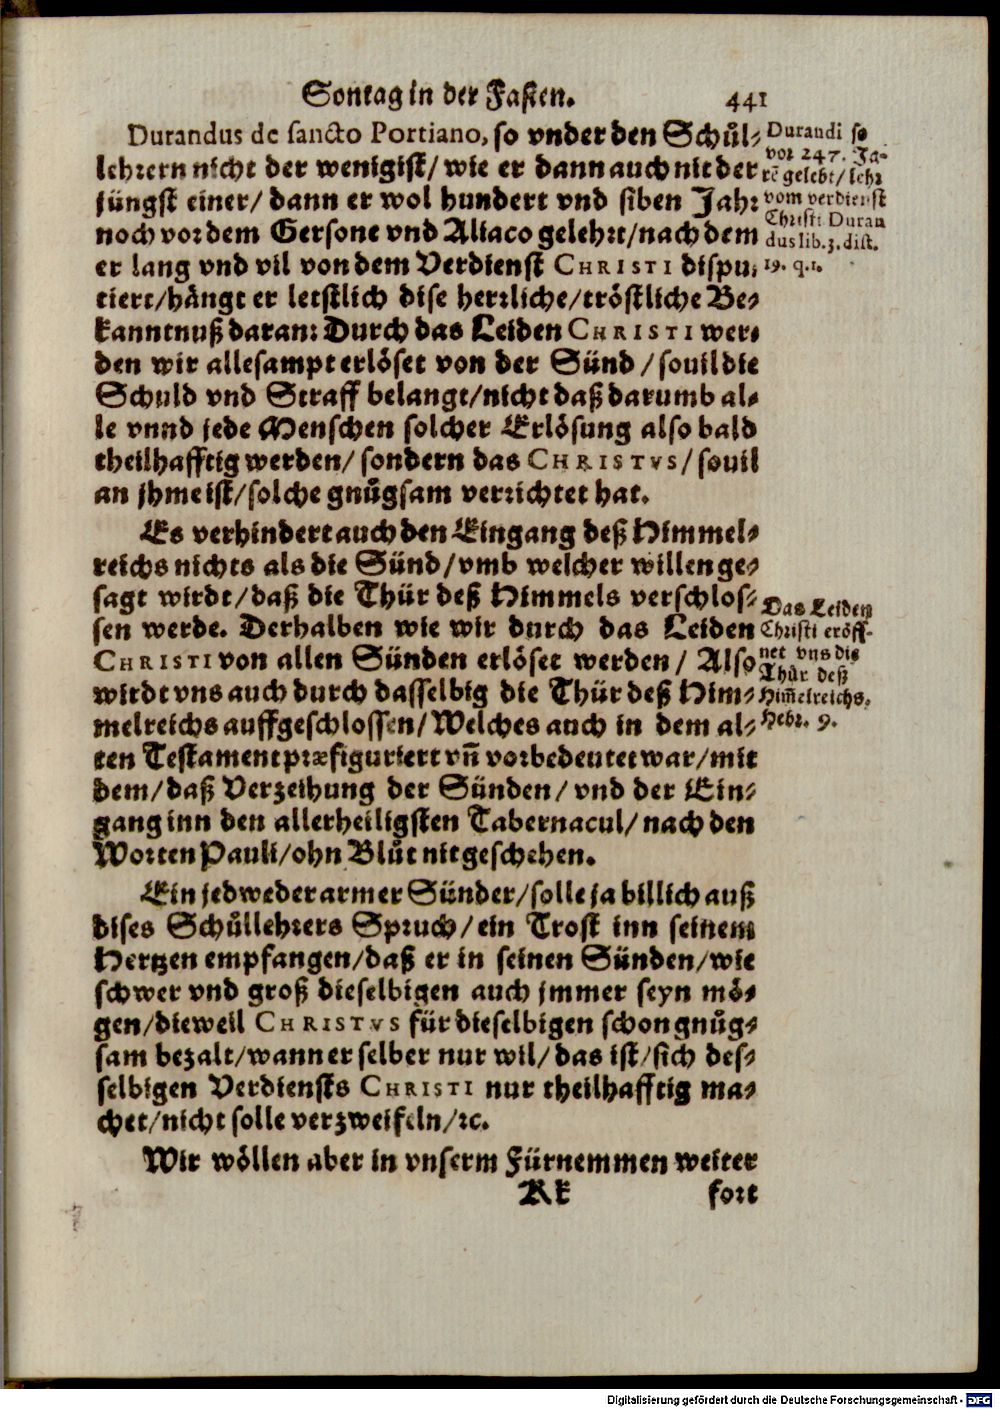 Sontag in der Fasten. 441
Durandus de sancto Portiano, so vnder den Schůl-
lehrern nicht der wenigist/ wie er dann auch nit der
jüngst einer/ dann er wol hundert vnd siben Jahr
noch vor dem Gersone vnd Aliaco gelehrt/nach dem
er lang vnd vil von dem Verdienst CHRISTI dispu-
tiert/hängt er letstlich dise herrliche/tröstliche Be-
kanntnuß daran: Durch das Leiden CHRISTI wer-
den wir allesampt erlöset von der Sünd/souil die
Schuld vnd Straff belangt/nicht daß darumb al-
le vnnd jede Menschen solcher Erlösung also bald
theilhafftig werden/ sondern das CHRISTVS/souil
an jhme ist/solche gnůgsam verrichtet hat.
Durandi so
vor 247. Ja-
rē gelebt/ lehr
vom verdienst
Christi Duran
dus lib. 3. dist.
19. q. 1.
Es verhindert auch den Eingang deß Himmel-
reichs nichts als die Sünd/vmb welcher willen ge-
sagt wirdt/daß die Thür deß Himmels verschlos-
sen werde. Derhalben wie wir durch das Leiden
CHRISTI von allen Sünden erlöset werden/ Also
wirdt vns auch durch dasselbig die Thür deß Him-
melreichs auffgeschlossen/Welches auch in dem al-
ten Testament præfiguriert vñ vorbedeutet war/mit
dem/daß Verzeihung der Sünden/vnd der Ein-
gang inn den allerheiligsten Tabernacul/nach den
Worten Pauli/ohn Blůt nit geschehen.
Das Leiden
Christi eröff-
net vns die
Thür deß
Him̃elreichs.
Hebr. 9.
Ein jedweder armer Sünder/solle ja billich auß
dises Schůllehrers Spruch/ein Trost inn seinem
Hertzen empfangen/daß er in seinen Sünden/wie
schwer vnd groß dieselbigen auch jmmer seyn mö-
gen/dieweil CHRISTVS für dieselbigen schon gnůg-
sam bezalt/wann er selber nur wil/das ist/sich des-
selbigen Verdiensts CHRISTI nur theilhafftig ma-
chet/nicht solle verzweifeln/ꝛc.
Wir wöllen aber in vnserm Fürnemmen weiter
Kk fort
Digitalisierung gefördert durch die Deutsche Forschungsgemeinschaft - DFG